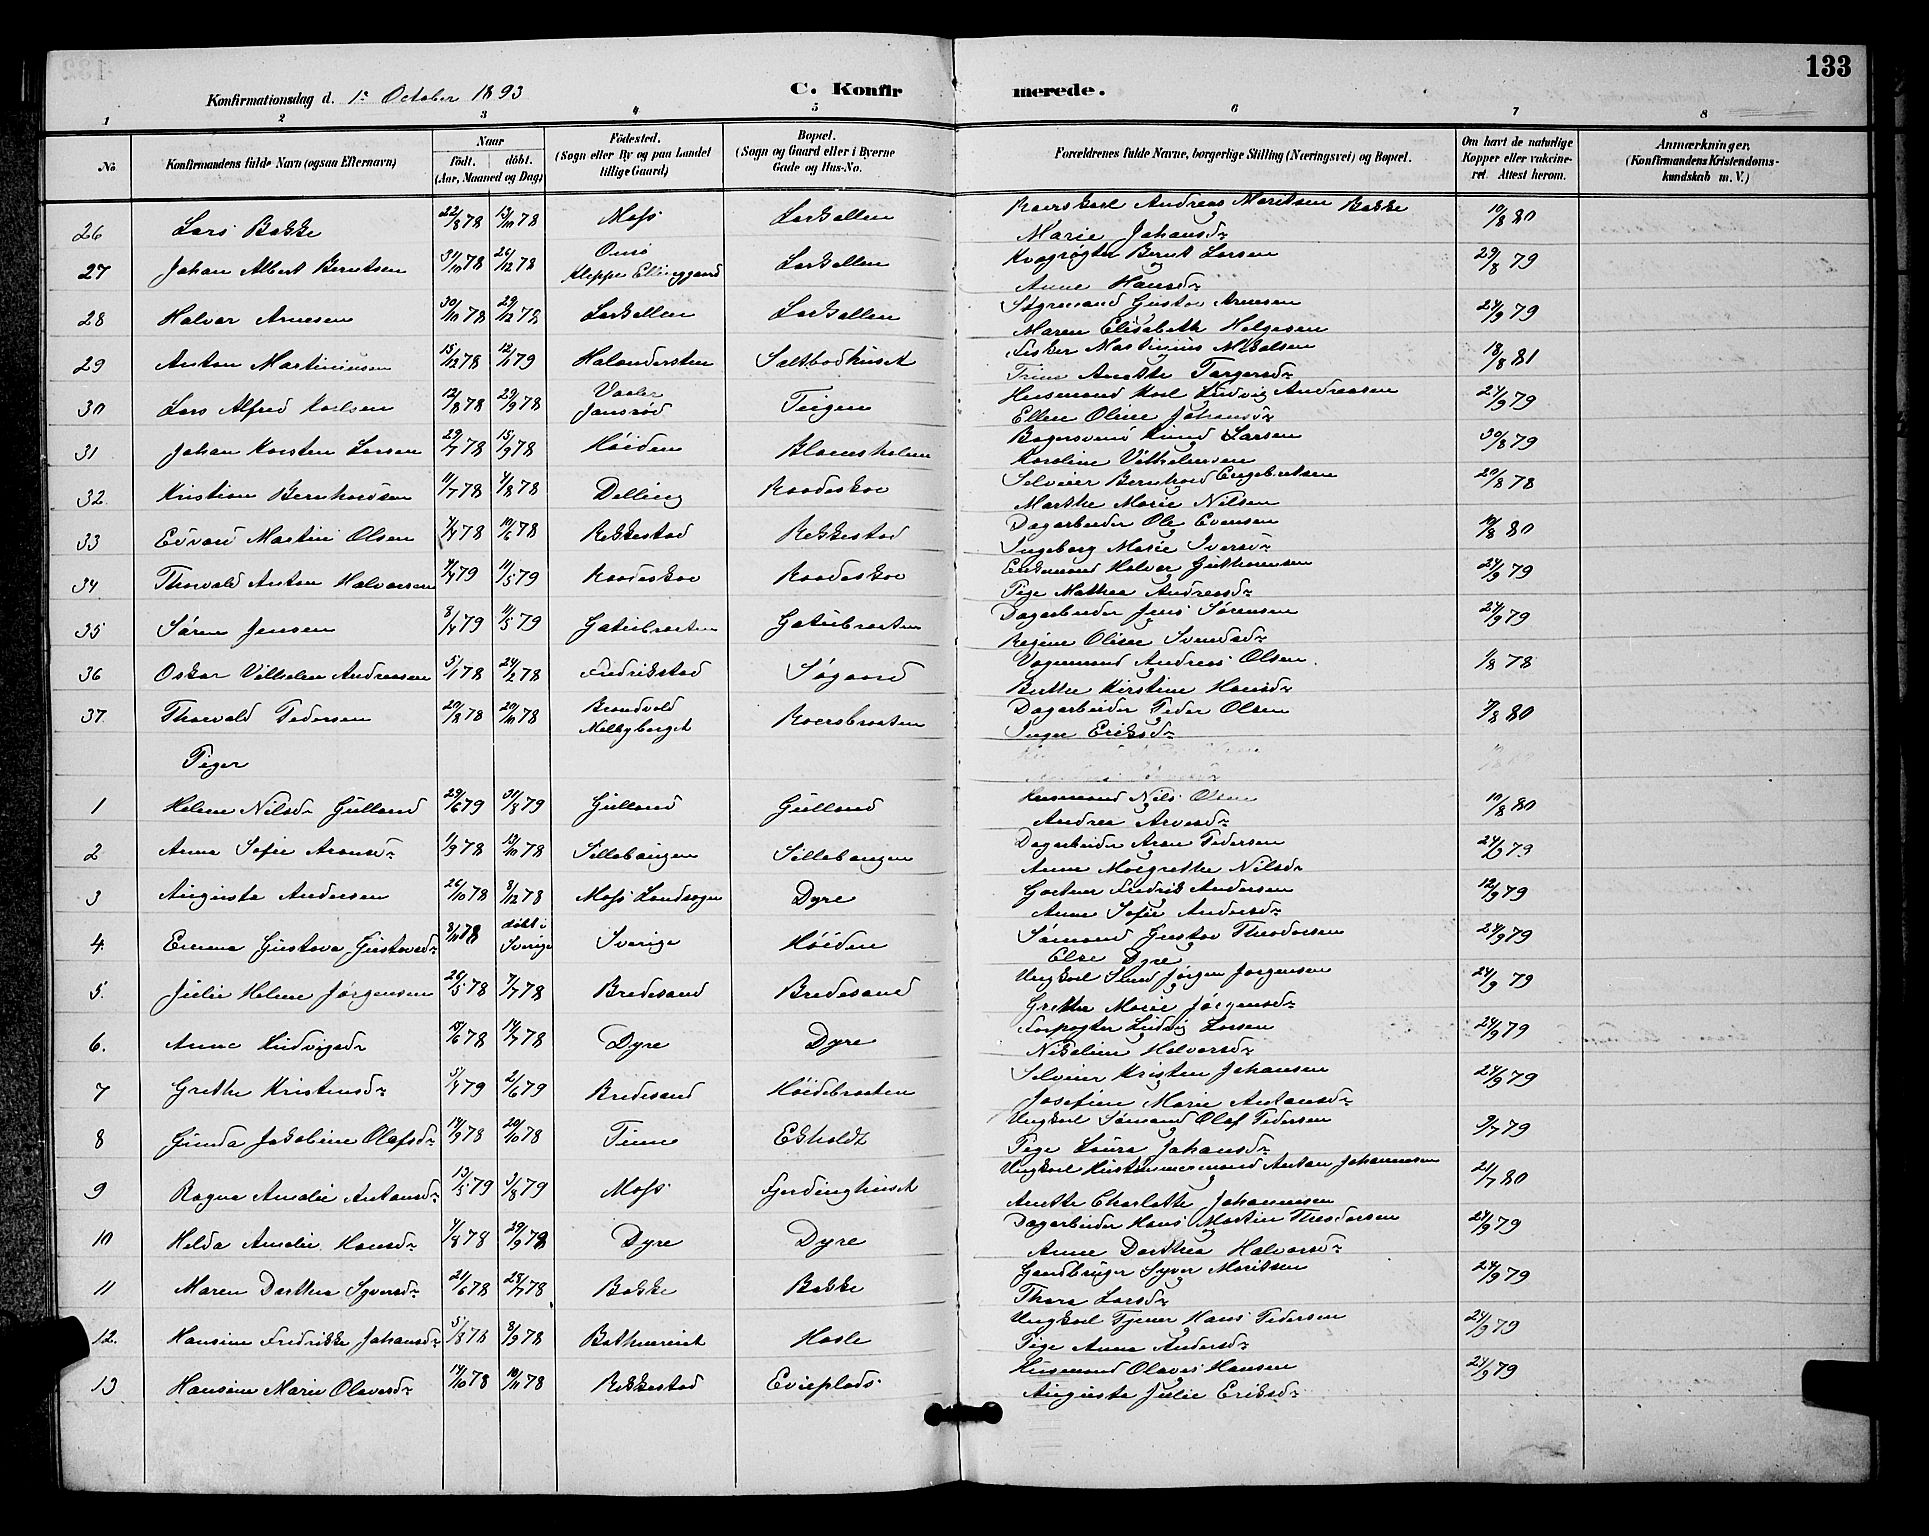 133
Konfirmationsdag d. 1ᵉ October 1893
C. Konfirmerede.
1 2 3 4 5 6 7 8
No
Konfirmandens fulde Navn (ogsaa Efternavn)
Naar
födt. döbt.
(Aar, Maaned og Dag)
Födested.
(Sogn eller By og paa Landet tillige Gaard)
Bopæl.
(Sogn og Gaard eller i Byerne Gade og Hus-No.
Forældrenes fulde Navne, borgerlige Stilling (Næringsvei) og Bopæl.
Om havt de naturlige Kopper eller vakcineret. Attest herom.
Anmærkninger.
(Konfirmandens Kristendomskundskab m. V.)
26 Lars Bakke 22/8 78 13/10 78 Moss Larkollen Andreas Maritsen Bakke 10/8 80
Marie Johansdr
27 Johan Albert Berntsen 31/10 78 26/12 78 Onsö Kleppe Elinggaard Larkollen Kvægrøgter Bernt Larsen 29/8 79
Anne Hansdr
28 Halvar Arnesen 30/10 78 29/12 78 Larkollen Larkollen Styrmand Gustav Arnesen 24/9 79
Maren Elisabeth Helgesen
29 Anton Martiniusen 15/12 78 12/1 79 Halandersten Saltbodhuset Fisker Martinius Mikalsen 18/8 81
Trine Anette Torgersdr
30 Lars Alfred Karlsen 12/8 78 29/9 78 Vaaler Jansrød Teigen Husmand Karl Ludvig Andreassen 24/9 79
Ellen Oline Johansdr
31 Johan Karsten Larsen 29/7 78 15/9 78 Höiden Blomsholmen Bagersvend Knud Larsen 30/8 79
Karoline Vilhelmsen
32 Kristian Bernhardsen 11/7 78 4/8 78 Delling Raadeskoe Selveier Bernhard Engebretsen 20/8 78
Marthe Marie Nilsen
33 Edvard Martin Olsen 4/4 78 10/6 78 Rekkestad Rekkestad Dagarbeider Ole Evensen 10/8 80
Ingeborg Marie Iversdr
34 Thorvald Anton Halvorsen 4/4 79 11/5 79 Raadeskoe Raadeskoe Enkemand Halvor Guthormsen 24/9 79
Pige Mathea Andreasdr
35 Søren Jensen 8/4 79 11/5 79 Gatubraaten Gatubraaten Dagarbeider Jens Sørensen 24/9 79
Regine Oline Svendsdr
36 Oskar Vilhelm Andreasen 5/1 78 24/2 78 Fredrikstad Søgaard Vognmand Andreas Olsen. 1/8 78
Berthe Kirstine Hansdr
37. Thorvald Pedersen 20/8 78 20/10 78 Brandvold Melbyberget Roersbraaten Dagarbeider Peder Olsen 7/8 80
Inger Eriksdr
Piger
1 Helene Nilsdr Gulland 29/6 79 31/8 79 Gulland Gulland Husmand Nils Olsen 10/8 80
Andrea Arvesdr
2 Anna Sofie Aronsdr 1/9 78 13/10 78 Sillebaugen Sillebaugen Dagarbeider Aron Pedersen 24/9 79
Anne Margrethe Nilsdr
3 Augusta Andersen 26/10 78 8/12 78 Moss Landsogn Dyre Gartner Fredrik Andersen 12/9 79
Anne Sofie Andersdr
4. Emma Gustava Gustavsdr 3/11 78 döbt i Sverige Sverige Höiden Sømand Gustav Theodorsen 24/9 79
Else Dyre
5. Julie Helene Jørgensen 26/5 78 7/7 78 Bredesand Bredesand Ungkarl Jørgen Jørgensen 24/9 79
Grethe Marie Jørgensdr
6. Anna Ludvigsdr 10/6 78 14/7 78 Dyre Dyre Forpagter Ludvig Larsen 24/9 79
Nikoline Halvorsdr
7 Grethe Kristensdr 5/4 79 2/6 79 Bredesand Höidebraaten Selveier Kristen Johansen 24/9 79
Josefine Marie Antonsdr
8 Gunda Jakobine Olafsdr 14/9 78 20/10 78 Tinne Ekholdt Ungkarl Sømand Olaf Pedersen 9/7 79
Pige Laura Johansdr
9 Ragna Amalie Antonsdr 13/5 79 3/8 79 Moss Fjerdinghuset Ungkarl Anton Johannesen 21/7 80
Anette Charlotte Johannesen
10 Helda Amalie Hansdr 4/8 78 29/9 78 Dyre Dyre Dagarbeider Hans Martin Theodorsen 24/9 79
Anne Dorthea Halvorsdr
11 Maren Dorthea Syversdr 21/6 78 28/7 78 Bakke Bakke Gaardbruger Syver Maritsen 24/9 79
Thora Larsdr
12. Hansine Fredrikke Johansdr 5/8 78 8/9 78 Botnereiet Hasle Ungkarl Tjener Hans Pedersen 24/9 79
Pige Anna Andersdr
13 Hansine Marie Olavesdr 14/10 78 10/11 78 Rekkestad Evieplads Husmand Olaves Hansen 24/9 79
Auguste Julie Eriksdr